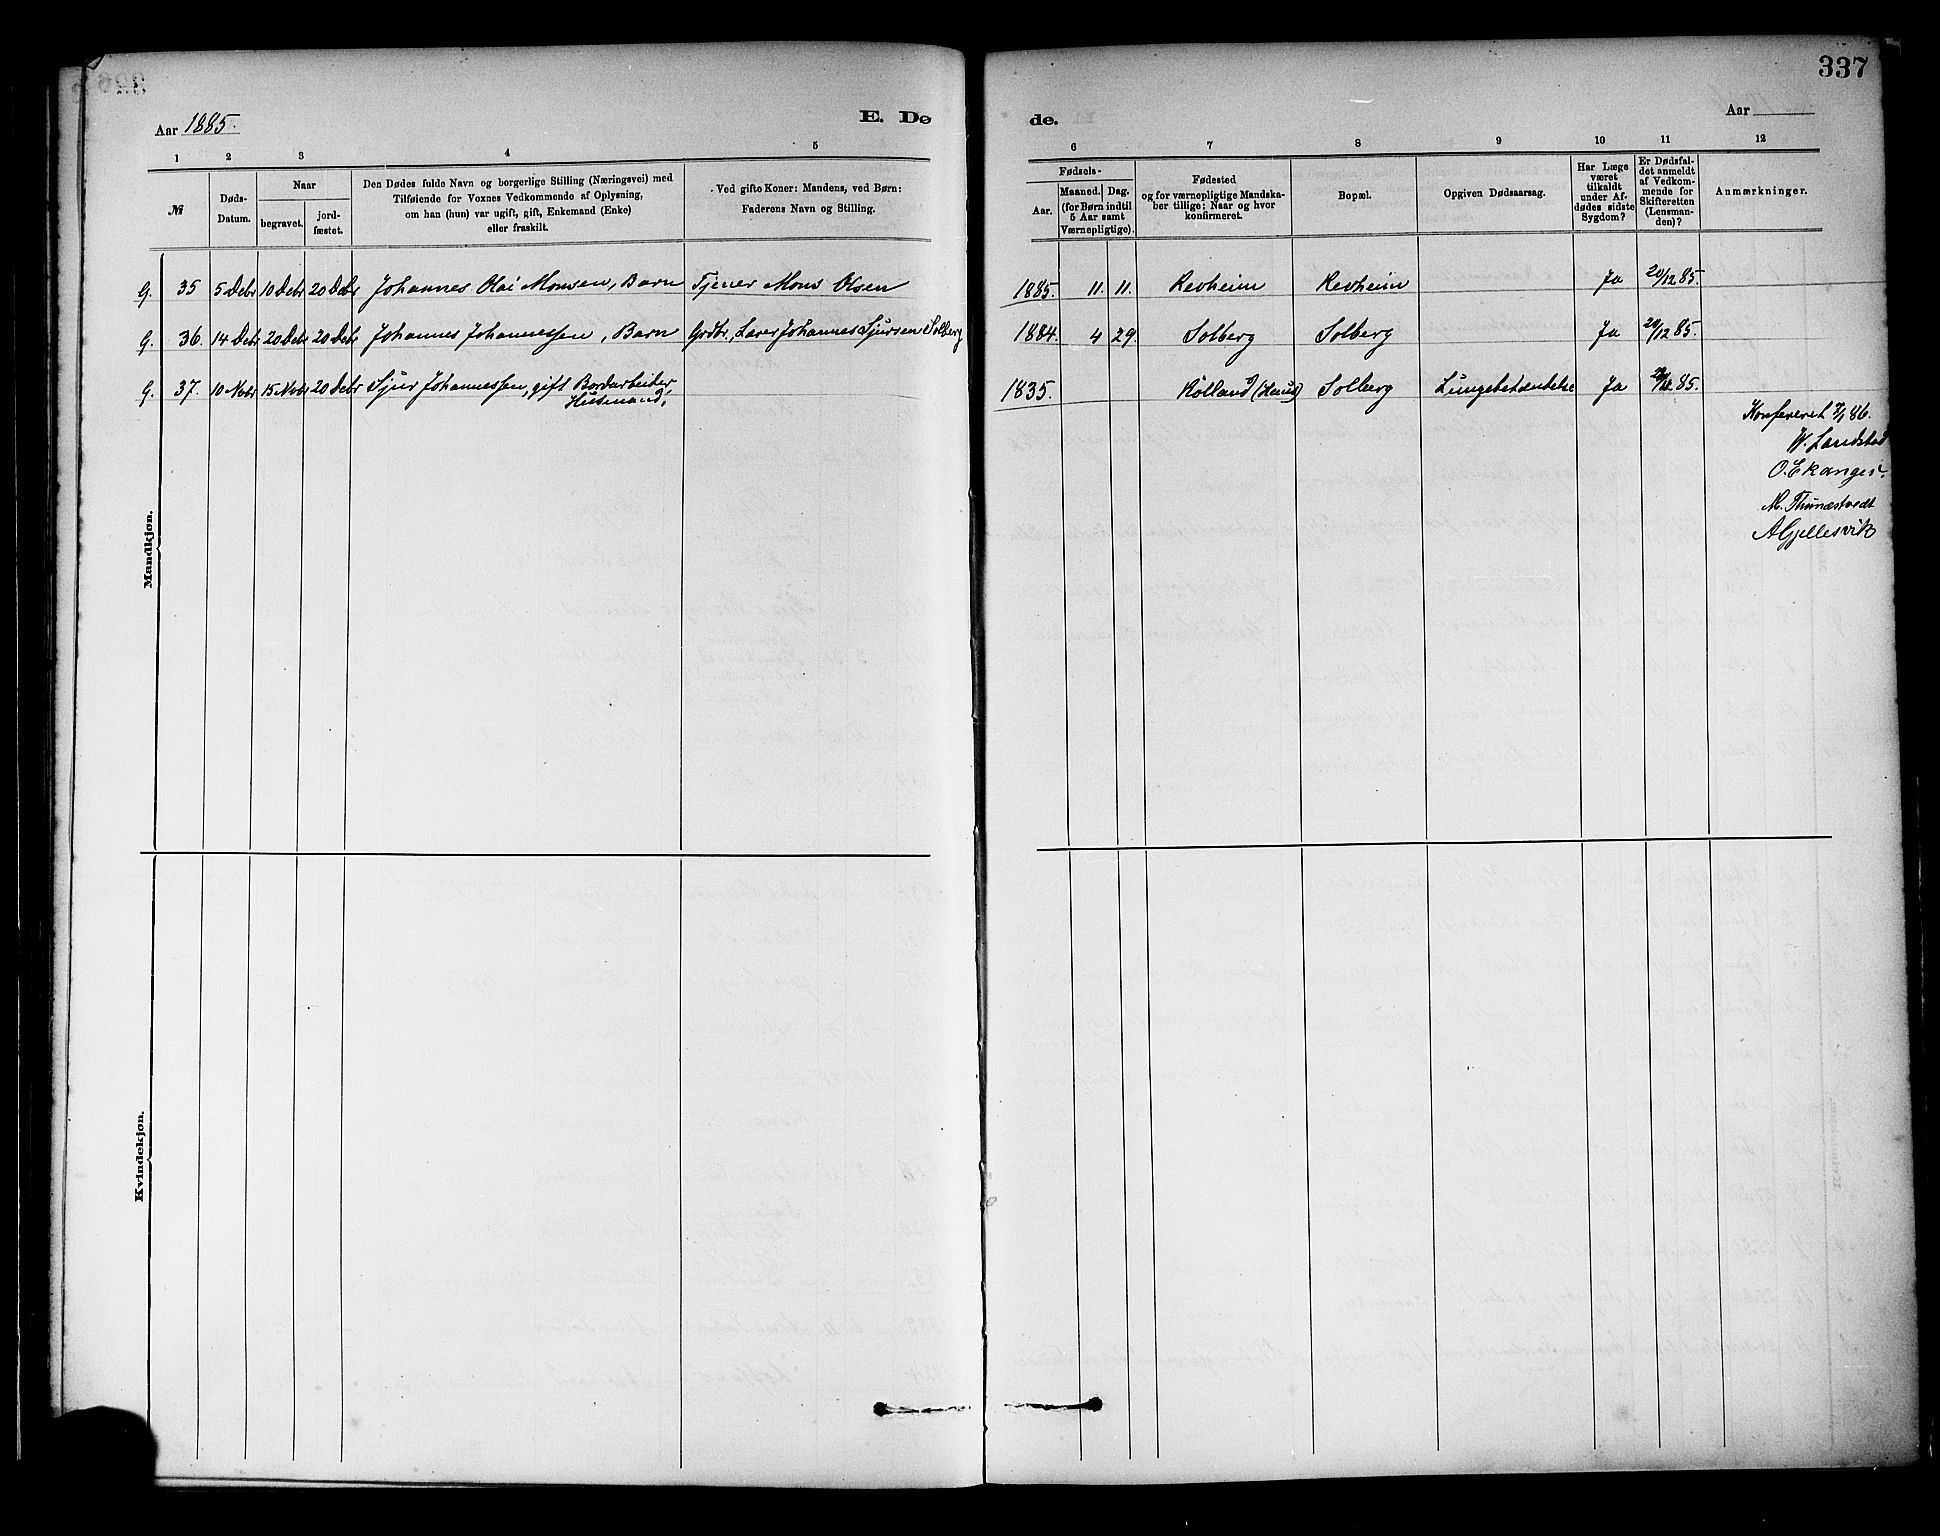 337
Aar 1885.
E. De
de.
Aar
1 2 3 4 5
6 7 8 9 10 11 12
№
Døds-
Datum.
Naar
begravet.
jord-
fæstet.
Den Dødes fulde Navn og borgerlige Stilling (Næringsvei) med
Tilføiende for Voxnes Vedkommende af Oplysning,
om han (hun) var ugift, gift, Enkemand (Enke)
eller fraskilt.
Ved gifte Koner: Mandens, ved Børn:
Faderens Navn og Stilling.
Fødsels-
Aar.
Maaned. Dag.
(for Børn indtil
5 Aar samt
Værnepligtige).
Fødested
og for værnepligtige Mandska-
ber tillige: Naar og hvor
konfirmeret.
Bopæl.
Opgiven Dødsaarsag.
Har Læge
været
tilkaldt
under Af-
dødes sidste
Sygdom?
Er Dødsfal-
det anmeldt
af Vedkom-
mende for
Skifteretten
(Lensman-
den)?
Anmærkninger.
G. 35 5 Debr 10 Debr 20 Debr Johannes Olai Monsen, Barn Tjener Mons Olsen 1885. 11. 11. Revheim Revheim Ja 20/12 85.
G. 36. 14 Debr 20 Debr 20 Debr Johannes Johannessen, Barn Grdbr., Lærer Johannes Sjursen Solberg 1884. 4 29. Solberg Solberg Ja 20/12 85.
G. 37. 10 Novbr 15 Novbr 20 Debr Sjur Johannessen, gift Bordarbeider, 1835. Rölland (Haus) Solberg Lungebetændelse Ja 85.
Husmand,
Konfereret 7/1 86.
W. Landstad
O. Ekanger.
M. Thunestvedt
A Gjellesvik
Mandkjøn.
Kvindekjøn.